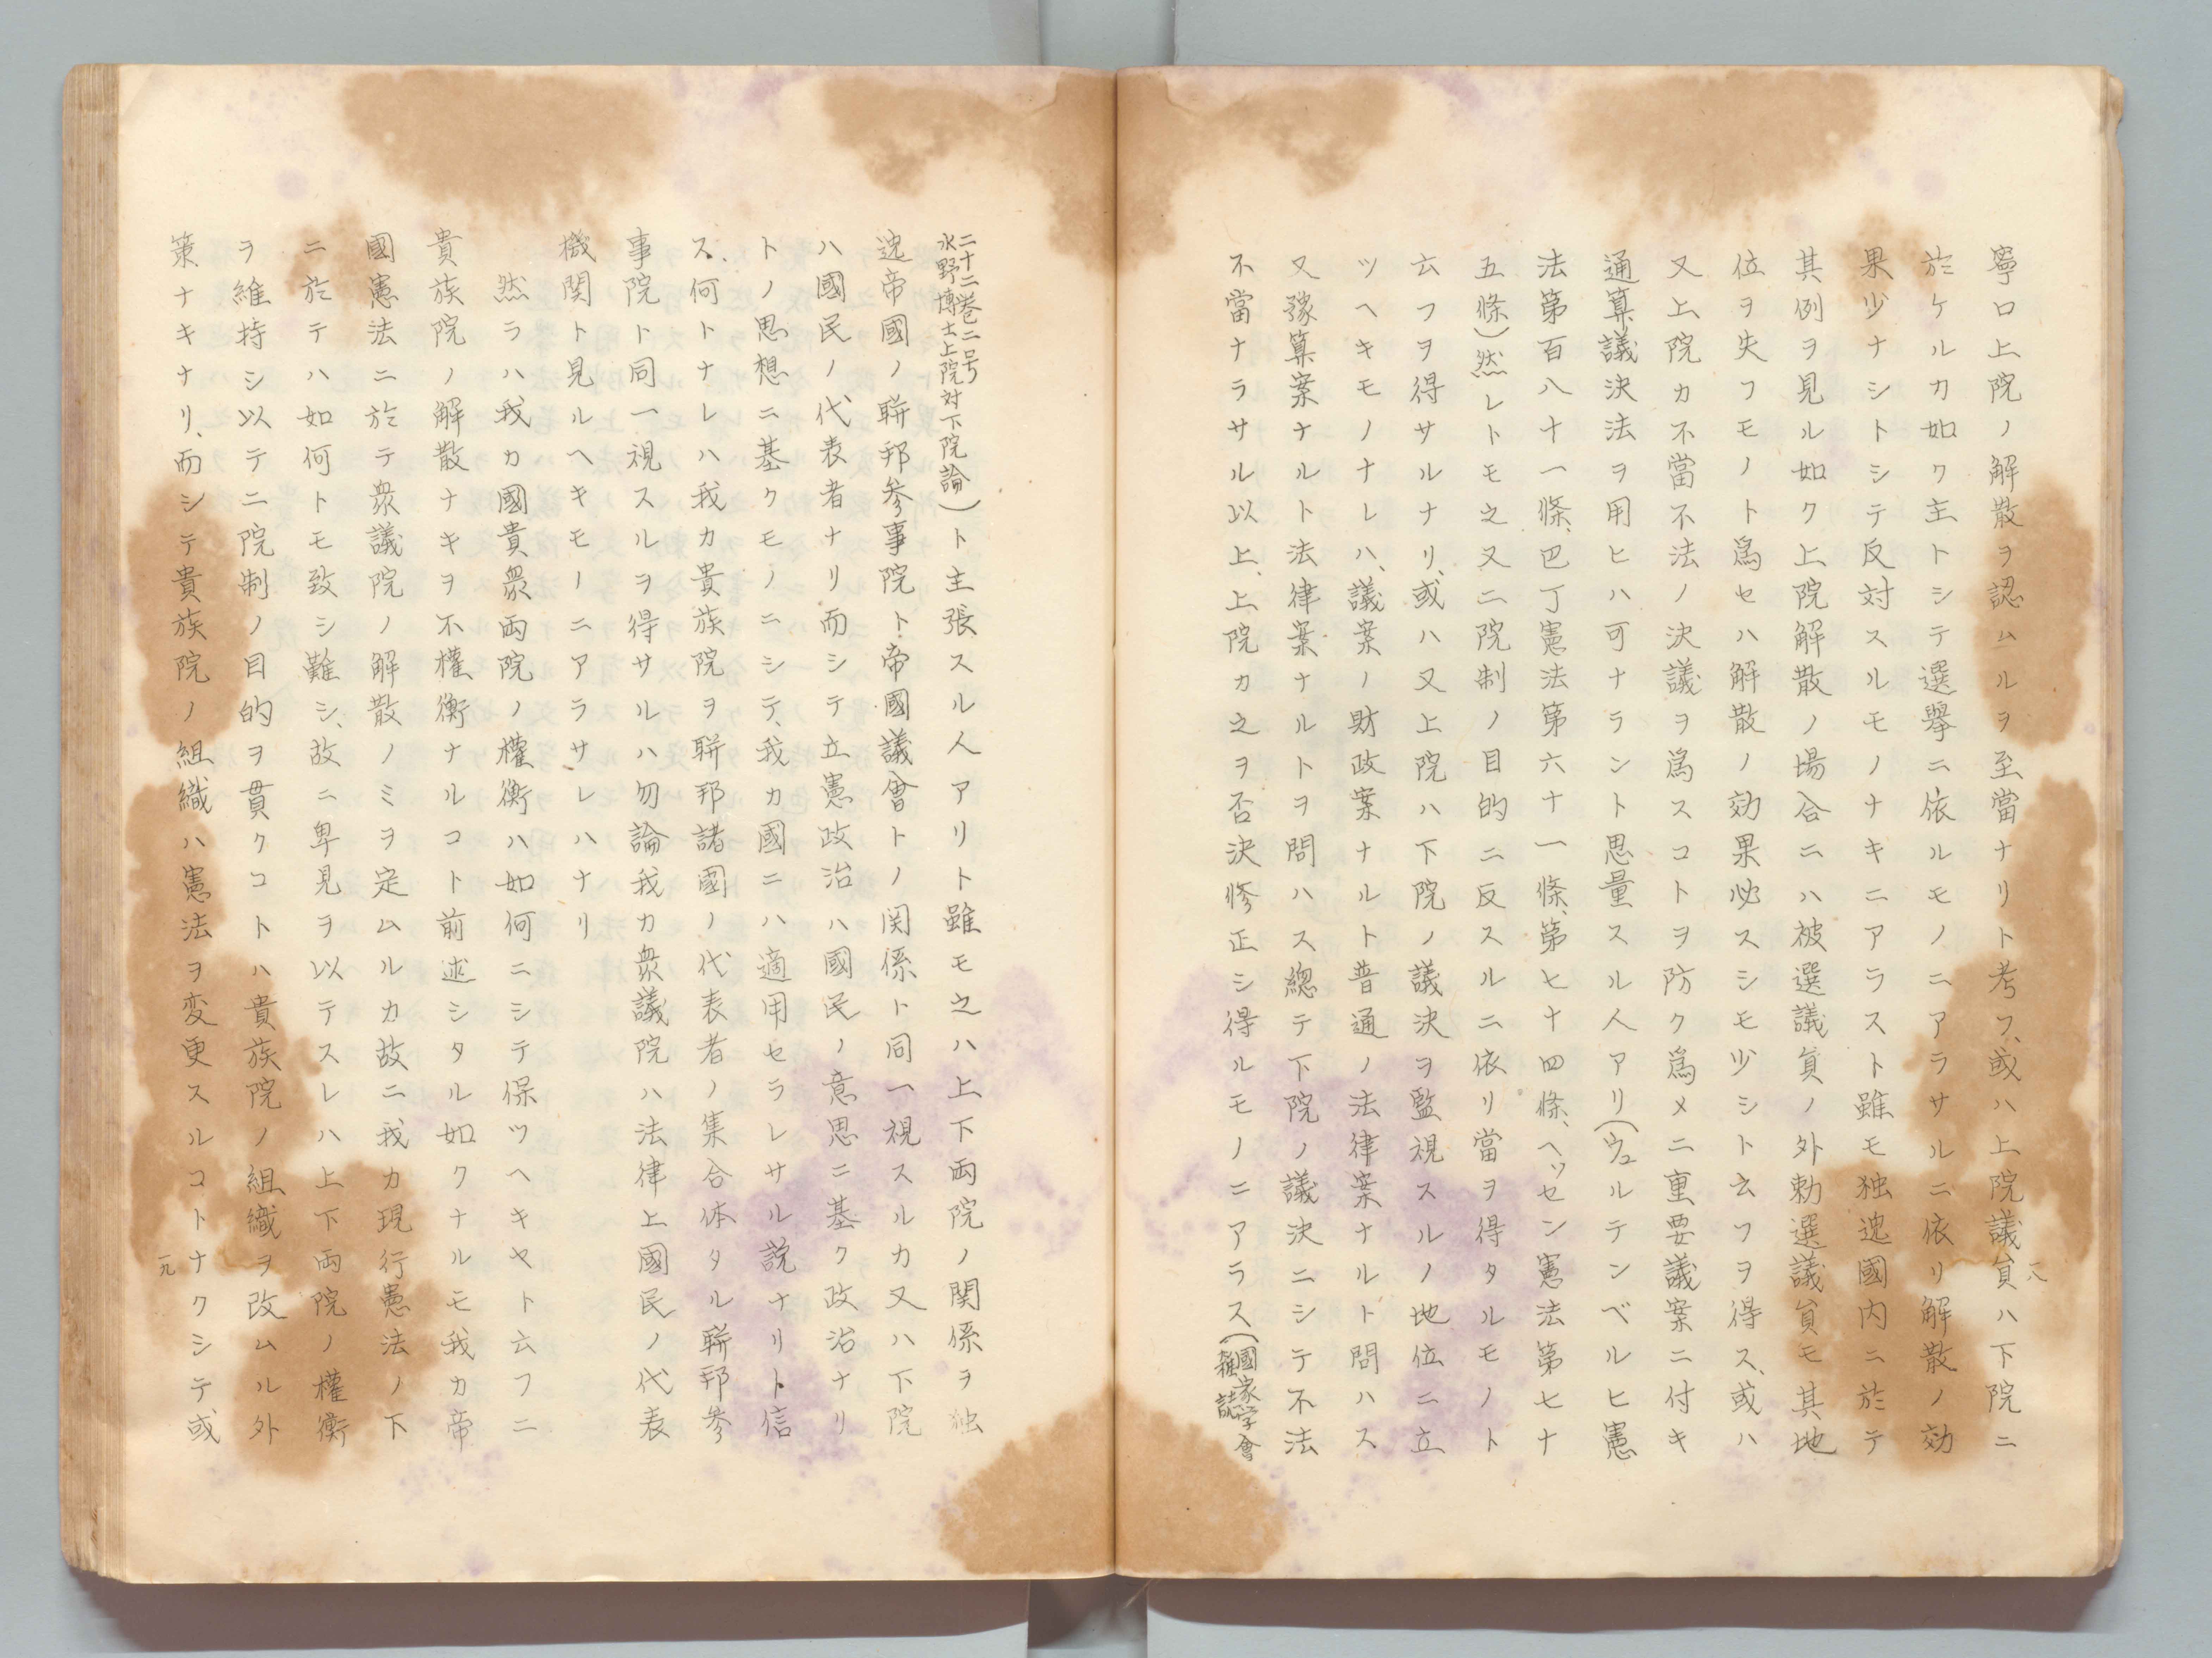 寧ロ上院ノ解散ヲ認ムルヲ至當ナリト考フ、或ハ上院議員ハ下院ニ
於ケルカ如ク主トシテ選擧ニ依ルモノニアラサルニ依リ解散ノ効
果少ナシトシテ反対スルモノナキニアラスト雖モ独逸國内ニ於テ
其例ヲ見ル如ク上院解散ノ場合ニハ被選議員ノ外勅選議員モ其地
位ヲ失フモノト爲セハ解散ノ効果必スシモ少シト云フヲ得ス、或ハ
又上院カ不當不法ノ決議ヲ爲スコトヲ防ク爲メニ重要議案ニ付キ
通算議決法ヲ用ヒハ可ナラント思量スル人アリ(ウュルテンベルヒ憲
法第百八十一條、巴丁憲法第六十一條、第七十四條、ヘッセン憲法第七十
五條)然レトモ之又二院制ノ目的ニ反スルニ依リ當ヲ得タルモノト
云フヲ得サルナリ、或ハ又上院ハ下院ノ議決ヲ監視スルノ地位ニ立
ツヘキモノナレハ、議案ノ財政案ナルト普通ノ法律案ナルト問ハス
又豫算案ナルト法律案ナルトヲ問ハス總テ下院ノ議決ニシテ不法
不當ナラサル以上、上院カ之ヲ否決修正シ得ルモノニアラス(國家学會
雑誌
一八
二十二巻二号
水野博士上院対下院論)ト主張スル人アリト雖モ之ハ上下両院ノ関係ヲ独
逸帝國ノ聨邦参事院ト帝國議會トノ関係ト同一視スルカ又ハ下院
ハ國民ノ代表者ナリ而シテ立憲政治ハ國民ノ意思ニ基ク政治ナリ
トノ思想ニ基クモノニシテ、我カ國ニハ適用セラレサル説ナリト信
ス、何トナレハ我カ貴族院ヲ聨邦諸國ノ代表者ノ集合体タル聨邦参
事院ト同一視スルヲ得サルハ勿論我カ衆議院ハ法律上國民ノ代表
機関ト見ルヘキモノニアラサレハナリ
然ラハ我カ國貴衆両院ノ權衡ハ如何ニシテ保ツヘキヤト云フニ
貴族院ノ解散ナキヲ不權衡ナルコト前述シタル如クナルモ我カ帝
國憲法ニ於テ衆議院ノ解散ノミヲ定ムルカ故ニ我カ現行憲法ノ下
ニ於テハ如何トモ致シ難シ、故ニ卑見ヲ以テスレハ上下両院ノ權衡
ヲ維持シ以テ二院制ノ目的ヲ貫クコトハ貴族院ノ組織ヲ改ムル外
策ナキナリ、而シテ貴族院ノ組織ハ憲法ヲ変更スルコトナクシテ或
一九